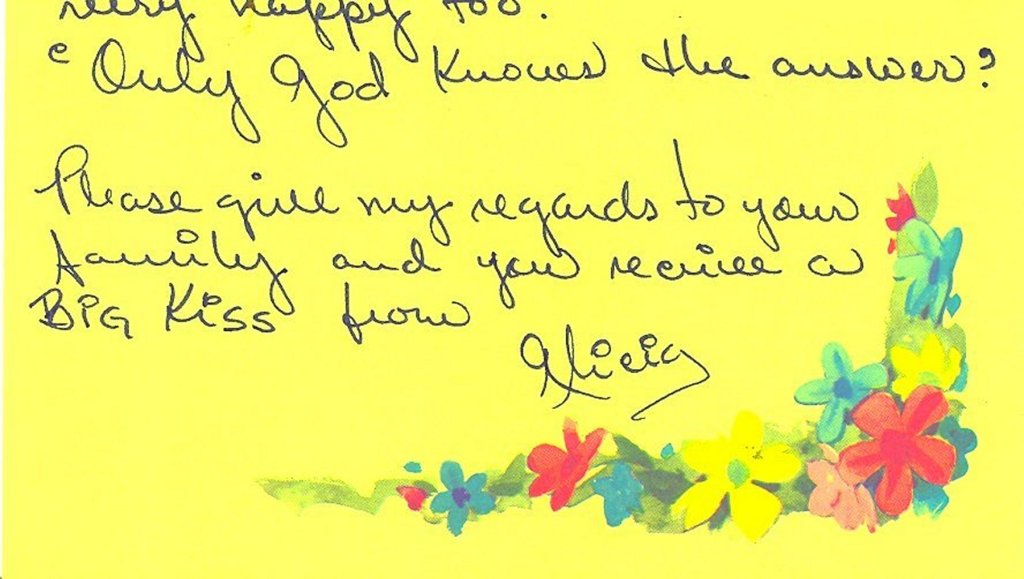 very happy too.
"Only God knows the answer?
Please give my regards to your
family and you receive a
BIG Kiss from
Alicia